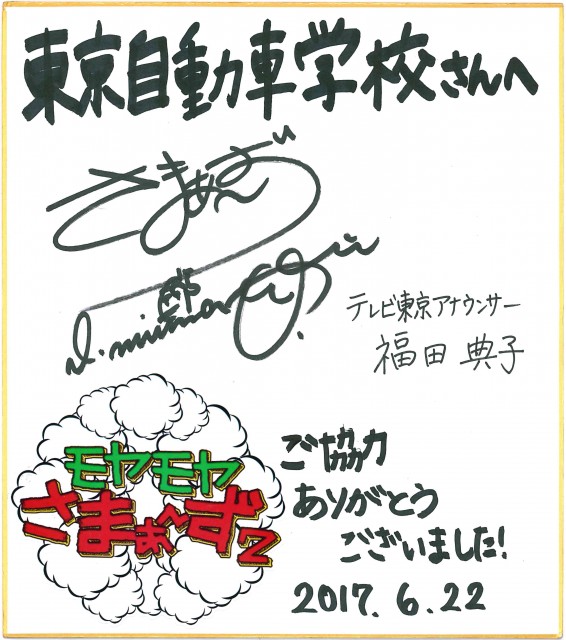 東京自動車学校さんへ
さまぁ〜ず
テレビ東京アナウンサー
福田 典子
モヤモヤ
さまぁ〜ず2
ご協力
ありがとう
ございました!
2017.6.22